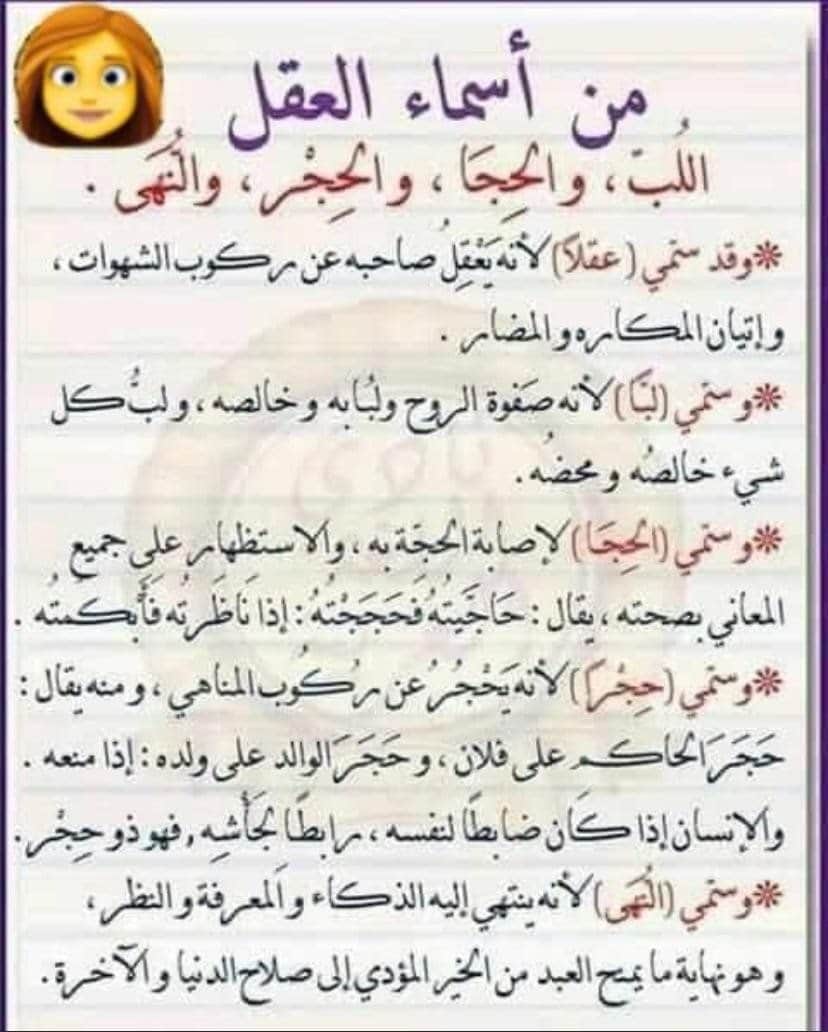 من أسماء العقل
اللُبّ، والحِجَا، والحِجْر، والنُّهَى .
*وقد سمّي (عقلاً) لأنه يَعْقِلُ صاحبه عن ركوب الشهوات ،
وإتيان المكاره والمضار .
*وسمّي (لبًّا) لأنه صَفوة الروح ولُبابه وخالصه، ولبُّ كل
شيء خالصُه ومحضُه.
*وسمّي (الحِجَا) لإصابة الحجّة به، والاستظهار على جميع
المعاني بصحته ، يقال : حَاجَيتُهُ فَحَجَجْتُهُ : إذا نَاظَرتُه فَأَبكمتُه .
*وسمّي (حِجْراً) لأنه يَحْجُرُ عن رُكُوب المناهي ، ومنه يقال :
حَجَرَ الحاكم على فلان ، وحَجَرَ الوالد على ولده : إذا منعه .
والإنسان إذا كان ضابطًا لنفسه ، رابطًا لجَأشِه , فهو ذو حِجْر.
*وسمّي (النُّهَى) لأنه ينتهي إليه الذكاء والمعرفة والنظر ،
وهو نهاية ما يمنح العبد من الخير المؤدي إلى صلاح الدنيا والآخرة.